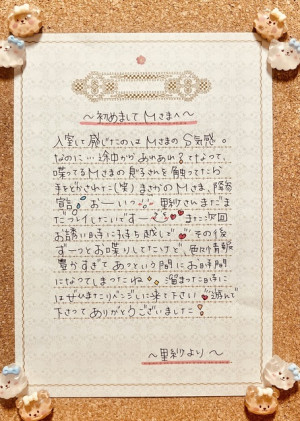 〜初めまして Mさまへ〜
入室して感じたのは Mさまの S気感。
なのに…途中から あれあれ？ってなって、
喋ってる Mさまの 触ってたら
手をどかされた(笑) まさかの Mさま、降参
宣言 おーいっ 里紗さんまだま
だプレイしたいですー また次回
お誘い日に持ち越しで その後
ずーっとお喋りしてたけど、色んな情報
豊かすぎて あっという間に お時間
になってしまったね 溜まった日に
はぜひまたリベンジに来て下さい 遊んで
下さって ありがとうございました！
〜里紗より〜